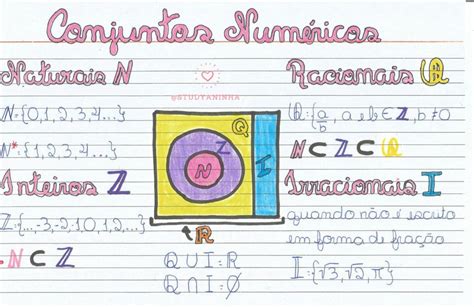 Conjuntos Numéricos
Naturais N
N:{0,1,2,3,4...}
N*:{1,2,3,4...}
Inteiros Z
Z:{...,-3,-2,-1,0,1,2...}
N ⊂ Z
@STUDYANINHA
Q
Z
N
I
R
Q U I = R
Q ∩ I = Ø
Racionais Q
Q:{a/b, a e b ∈ Z, b ≠ 0
N ⊂ Z ⊂ Q
Irracionais I
quando não é escrito
em forma de fração
I:{√3, √2, π}